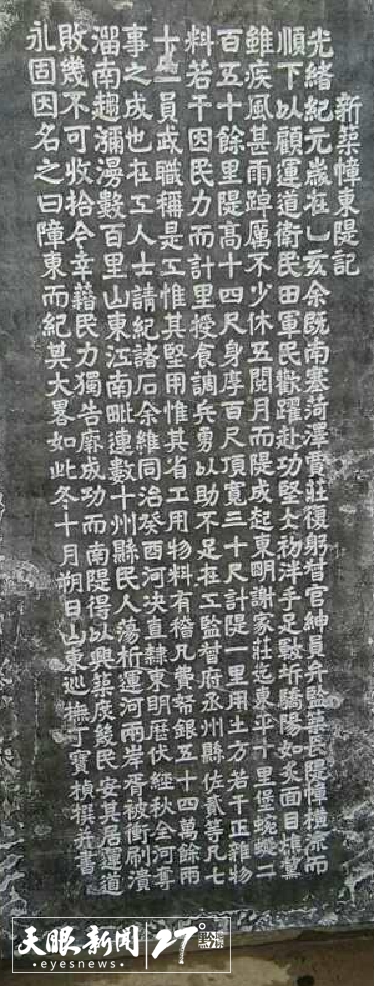 新築障東隄記
光緒紀元歲在乙亥余既南塞菏澤賈莊復躬督官紳員弁監築長隄障橫流而
順下以顧運道衛民田軍民歡躍赴功堅仌初泮手足皸坼驕陽如炙面目焦黧
雖疾風甚雨踔厲不少休五閱月而隄成起東明謝家莊迄東平十里堡蜿蜒二
百五十餘里隄高十四尺身厚百尺頂寬三十尺計隄一里用土方若干正雜物
料若干因民力而計里授食調兵勇以助不足在工監督府丞州縣佐貳等凡七
十一員或職稱是工惟其堅用惟其省工用物料有稽凡費帑銀五十四萬餘兩
事之成也在工人士請紀諸石余維同治癸酉河決直隸東明歷伏經秋全河奪
溜南趨瀰漫數百里山東江南毗連數十州縣民人蕩析運河兩岸胥被衝刷潰
敗幾不可收拾今幸藉民力獨告厥成功而南隄得以興築庶幾民安其居運道
永固因名之曰障東而紀其大畧如此冬十月朔日山東巡撫丁寶楨撰并書
天眼新聞 27° 黔
·eyesnews·